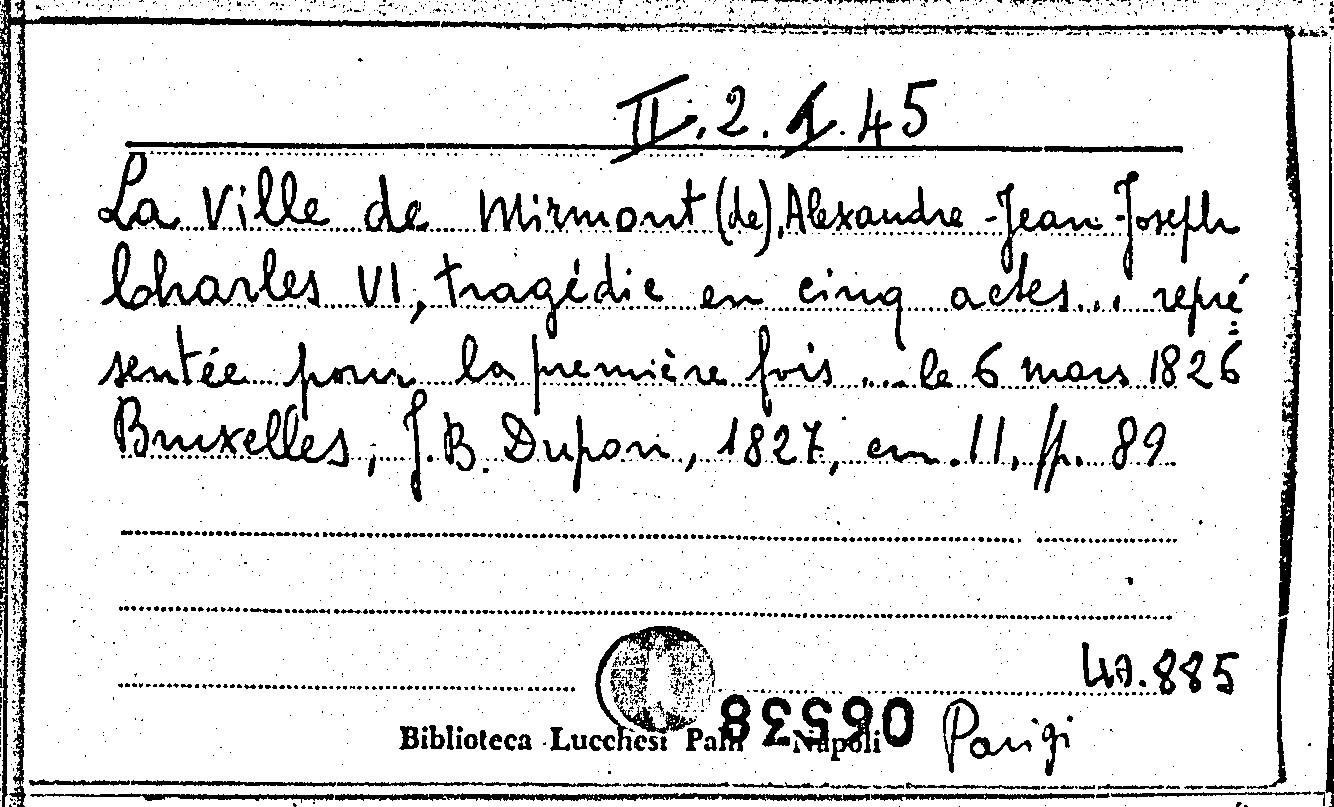 II.2.1.45
La Ville de Mirmont (de), Alexandre-Jean-Joseph
Charles VI, tragédie en cinq actes... repré=
sentée pour la première fois ... le 6 mars 1826
Bruxelles, J.B. Dupon, 1827, cm. 11, pp. 89
47.885
06538
Biblioteca Lucchesi Palli - Napoli
Parigi